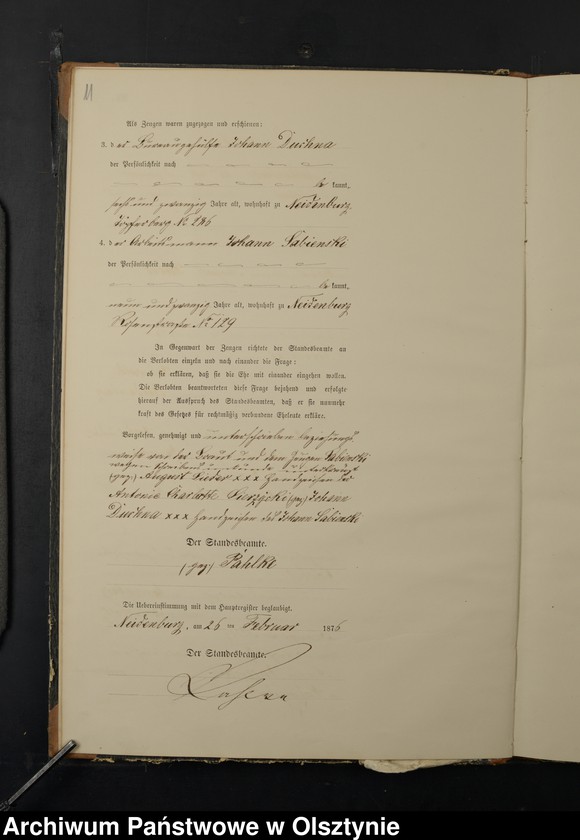 11
Als Zeugen waren zugezogen und erschienen:
3. der Bureaugehülfe Johann Duchna
der Persönlichkeit nach
be kannt,
sechs und zwanzig Jahre alt, wohnhaft zu Neidenburg
Töpferberg No 286
4. der Arbeitsmann Johann Sabienski
der Persönlichkeit nach
be kannt,
neun und zwanzig Jahre alt, wohnhaft zu Neidenburg
Rosenstraße No 129
In Gegenwart der Zeugen richtete der Standesbeamte an
die Verlobten einzeln und nach einander die Frage:
ob sie erklären, daß sie die Ehe mit einander eingehen wollen.
Die Verlobten beantworteten diese Frage bejahend und erfolgte
hierauf der Ausspruch des Standesbeamten, daß er sie nunmehr
kraft des Gesetzes für rechtmäßig verbundene Eheleute erkläre.
Vorgelesen, genehmigt und unterschrieben beziehungs
weise von der Braut und dem Zeugen Sabienski
wegen Schreibensunkunde unterkreuzt
(gez.) August xxx Handzeichen der
Antonie Charlotte (gez) Johann
Duchna xxx Handzeichen des Johann Sabienski
Der Standesbeamte.
(gez) Pahlke
Die Uebereinstimmung mit dem Hauptregister beglaubigt.
Neidenburg, am 26 ten Februar 1876
Der Standesbeamte.
Archiwum Państwowe w Olsztynie